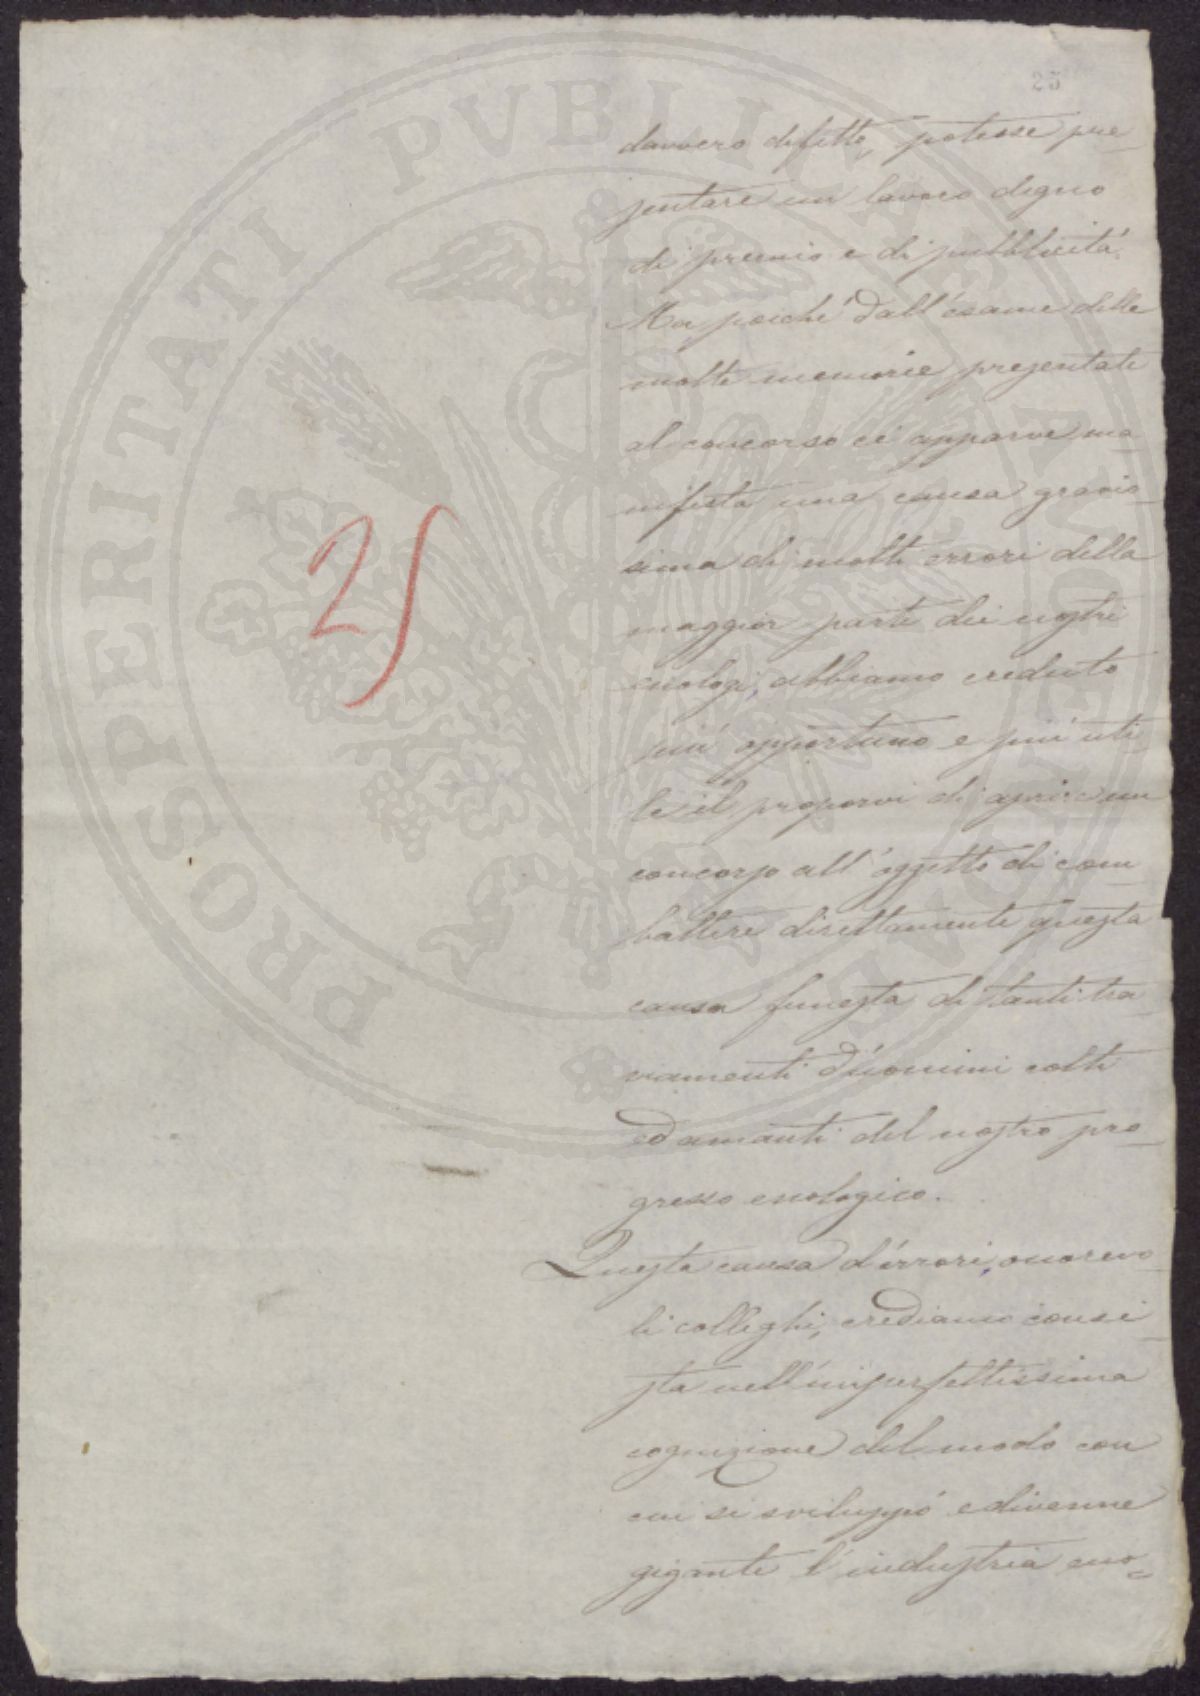 25
davvero difetto, potesse pre
sentare un lavoro degno
di premio e di pubblicità.
Ma poichè dall'esame delle
molte memorie presentate
al concorso ci apparve ma
nifesta una causa gravis
sima di molti errori della
maggior parte dei nostri
enologi, abbiamo creduto
più opportuno e più uti
le il proporvi di aprire un
concorso all'oggetto di com
battere direttamente questa
causa funesta di tanti tra
viamenti d'uomini colti
ed amanti del nostro pro
gresso enologico.
Questa causa d'errori, onorevo
li colleghi, crediamo consi
sta nell'imperfettissima
cognizione del modo con
cui si sviluppò e divenne
gigante l'industria eno=
25
PROSPERITATI PVBLICAE AVGENDAE